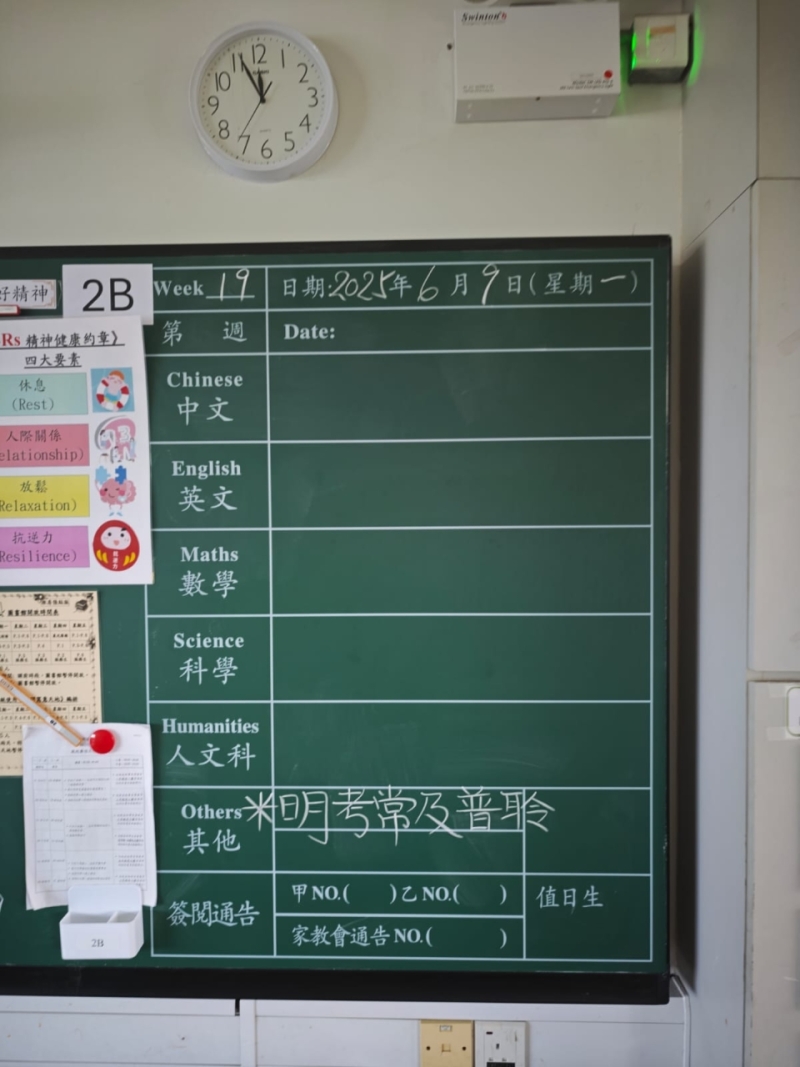 Swinton's
12
1
2
3
4
5
6
7
8
9
10
11
QUARTZ
好精神
2B
Week 19
日期:2025年6月9日(星期一)
第 週
Date:
Rs 精神健康約章》
四大要素
休息
(Rest)
人際關係
elationship)
放鬆
Relaxation)
抗逆力
Resilience)
Chinese
中文
English
英文
Maths
數學
Science
科學
Humanities
人文科
Others
其他
*明考常及普聆
簽閱通告
甲NO.( )乙NO.( )
家教會通告NO.( )
值日生
2B